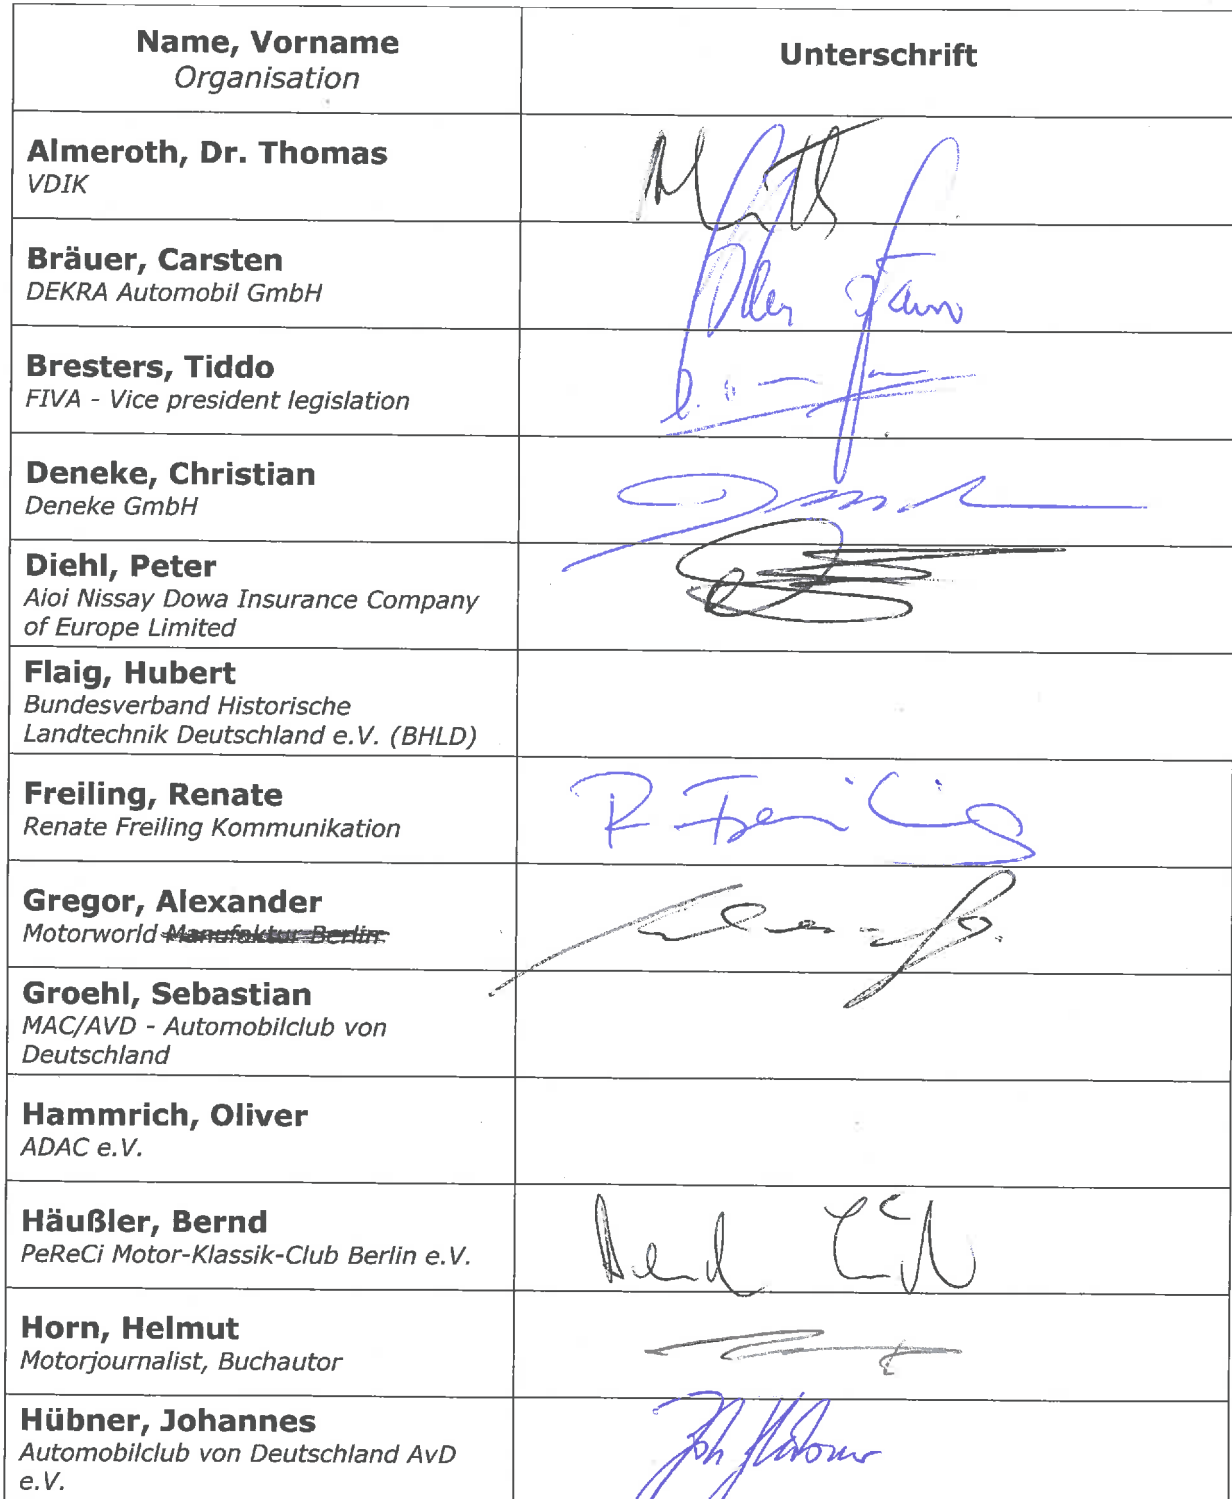 Name, Vorname
Organisation
Unterschrift
Almeroth, Dr. Thomas
VDIK
Bräuer, Carsten
DEKRA Automobil GmbH
Bresters, Tiddo
FIVA - Vice president legislation
Deneke, Christian
Deneke GmbH
Diehl, Peter
Aioi Nissay Dowa Insurance Company
of Europe Limited
Flaig, Hubert
Bundesverband Historische
Landtechnik Deutschland e.V. (BHLD)
Freiling, Renate
Renate Freiling Kommunikation
R Freiling
Gregor, Alexander
Motorworld Manufaktur Berlin
Groehl, Sebastian
MAC/AVD - Automobilclub von
Deutschland
Hammrich, Oliver
ADAC e.V.
Häußler, Bernd
PeReCi Motor-Klassik-Club Berlin e.V.
Bernd
Horn, Helmut
Motorjournalist, Buchautor
Hübner, Johannes
Automobilclub von Deutschland AvD
e.V.
Joh Hübner